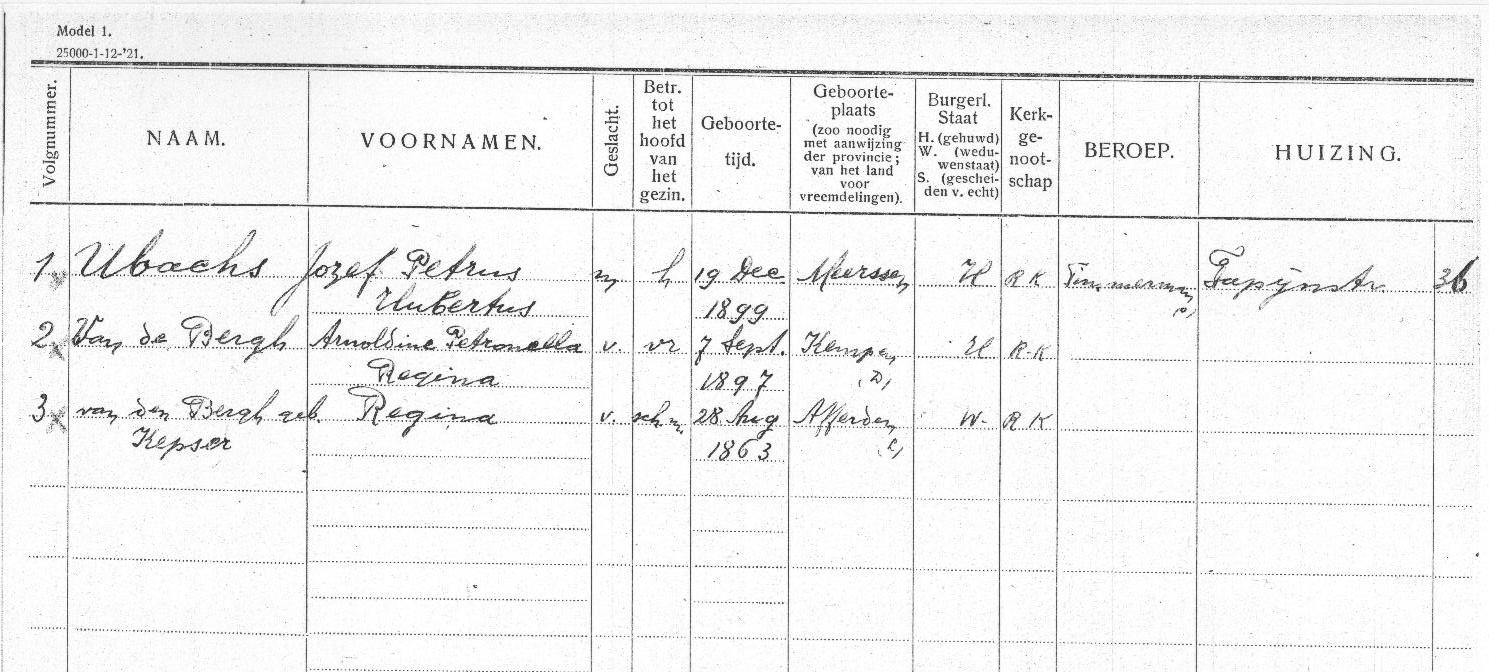 Model 1.
25000-1-12-'21.
Volgnummer.
NAAM.
VOORNAMEN.
Geslacht.
Betr.
tot
het
hoofd
van
het
gezin.
Geboorte-
tijd.
Geboorte-
plaats
(zoo noodig
met aanwijzing
der provincie;
van het land
voor
vreemdelingen).
Burgerl.
Staat
H. (gehuwd)
W. (wedu-
wenstaat)
S. (geschei-
den v. echt)
Kerk-
ge-
noot-
schap
BEROEP.
HUIZING.
1 Ubachs Jozef Petrus m h 19 Dec Meerssen H R K Timmerman Tapijnstr. 36
Hubertus 1899
2 Van de Bergh Arnoldine Petronella v. vr 7 Sept. Kempen H R-K
Regina 1897 (D)
3 van den Bergh geb. Regina v. sch m. 28 Aug Afferden W- R K
Kepser 1863 (L)